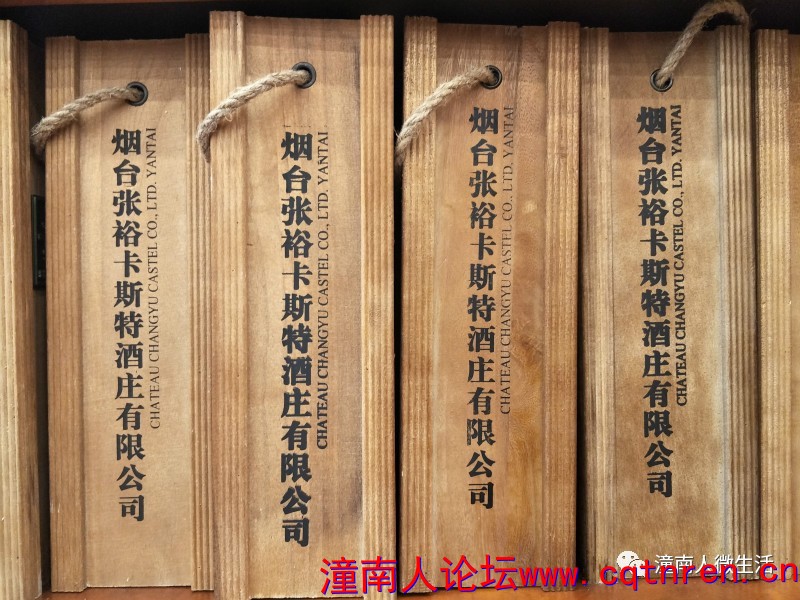 烟台张裕卡斯特酒庄有限公司
CHATEAU CHANGYU CASTEL CO., LTD. YANTAI
烟台张裕卡斯特酒庄有限公司
CHATEAU CHANGYU CASTEL CO., LTD. YANTAI
烟台张裕卡斯特酒庄有限公司
CHATEAU CHANGYU CASTEL CO., LTD. YANTAI
烟台张裕卡斯特酒庄有限公司
CHATEAU CHANGYU CASTEL CO., LTD. YANTAI
潼南人微生活
潼南人论坛www.cqtnren.cn